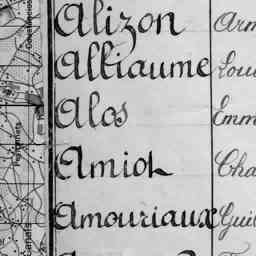 Alizon Arm
Alliaume Loui
Alos Emm
Amiot Cha
Amouriaux Guil